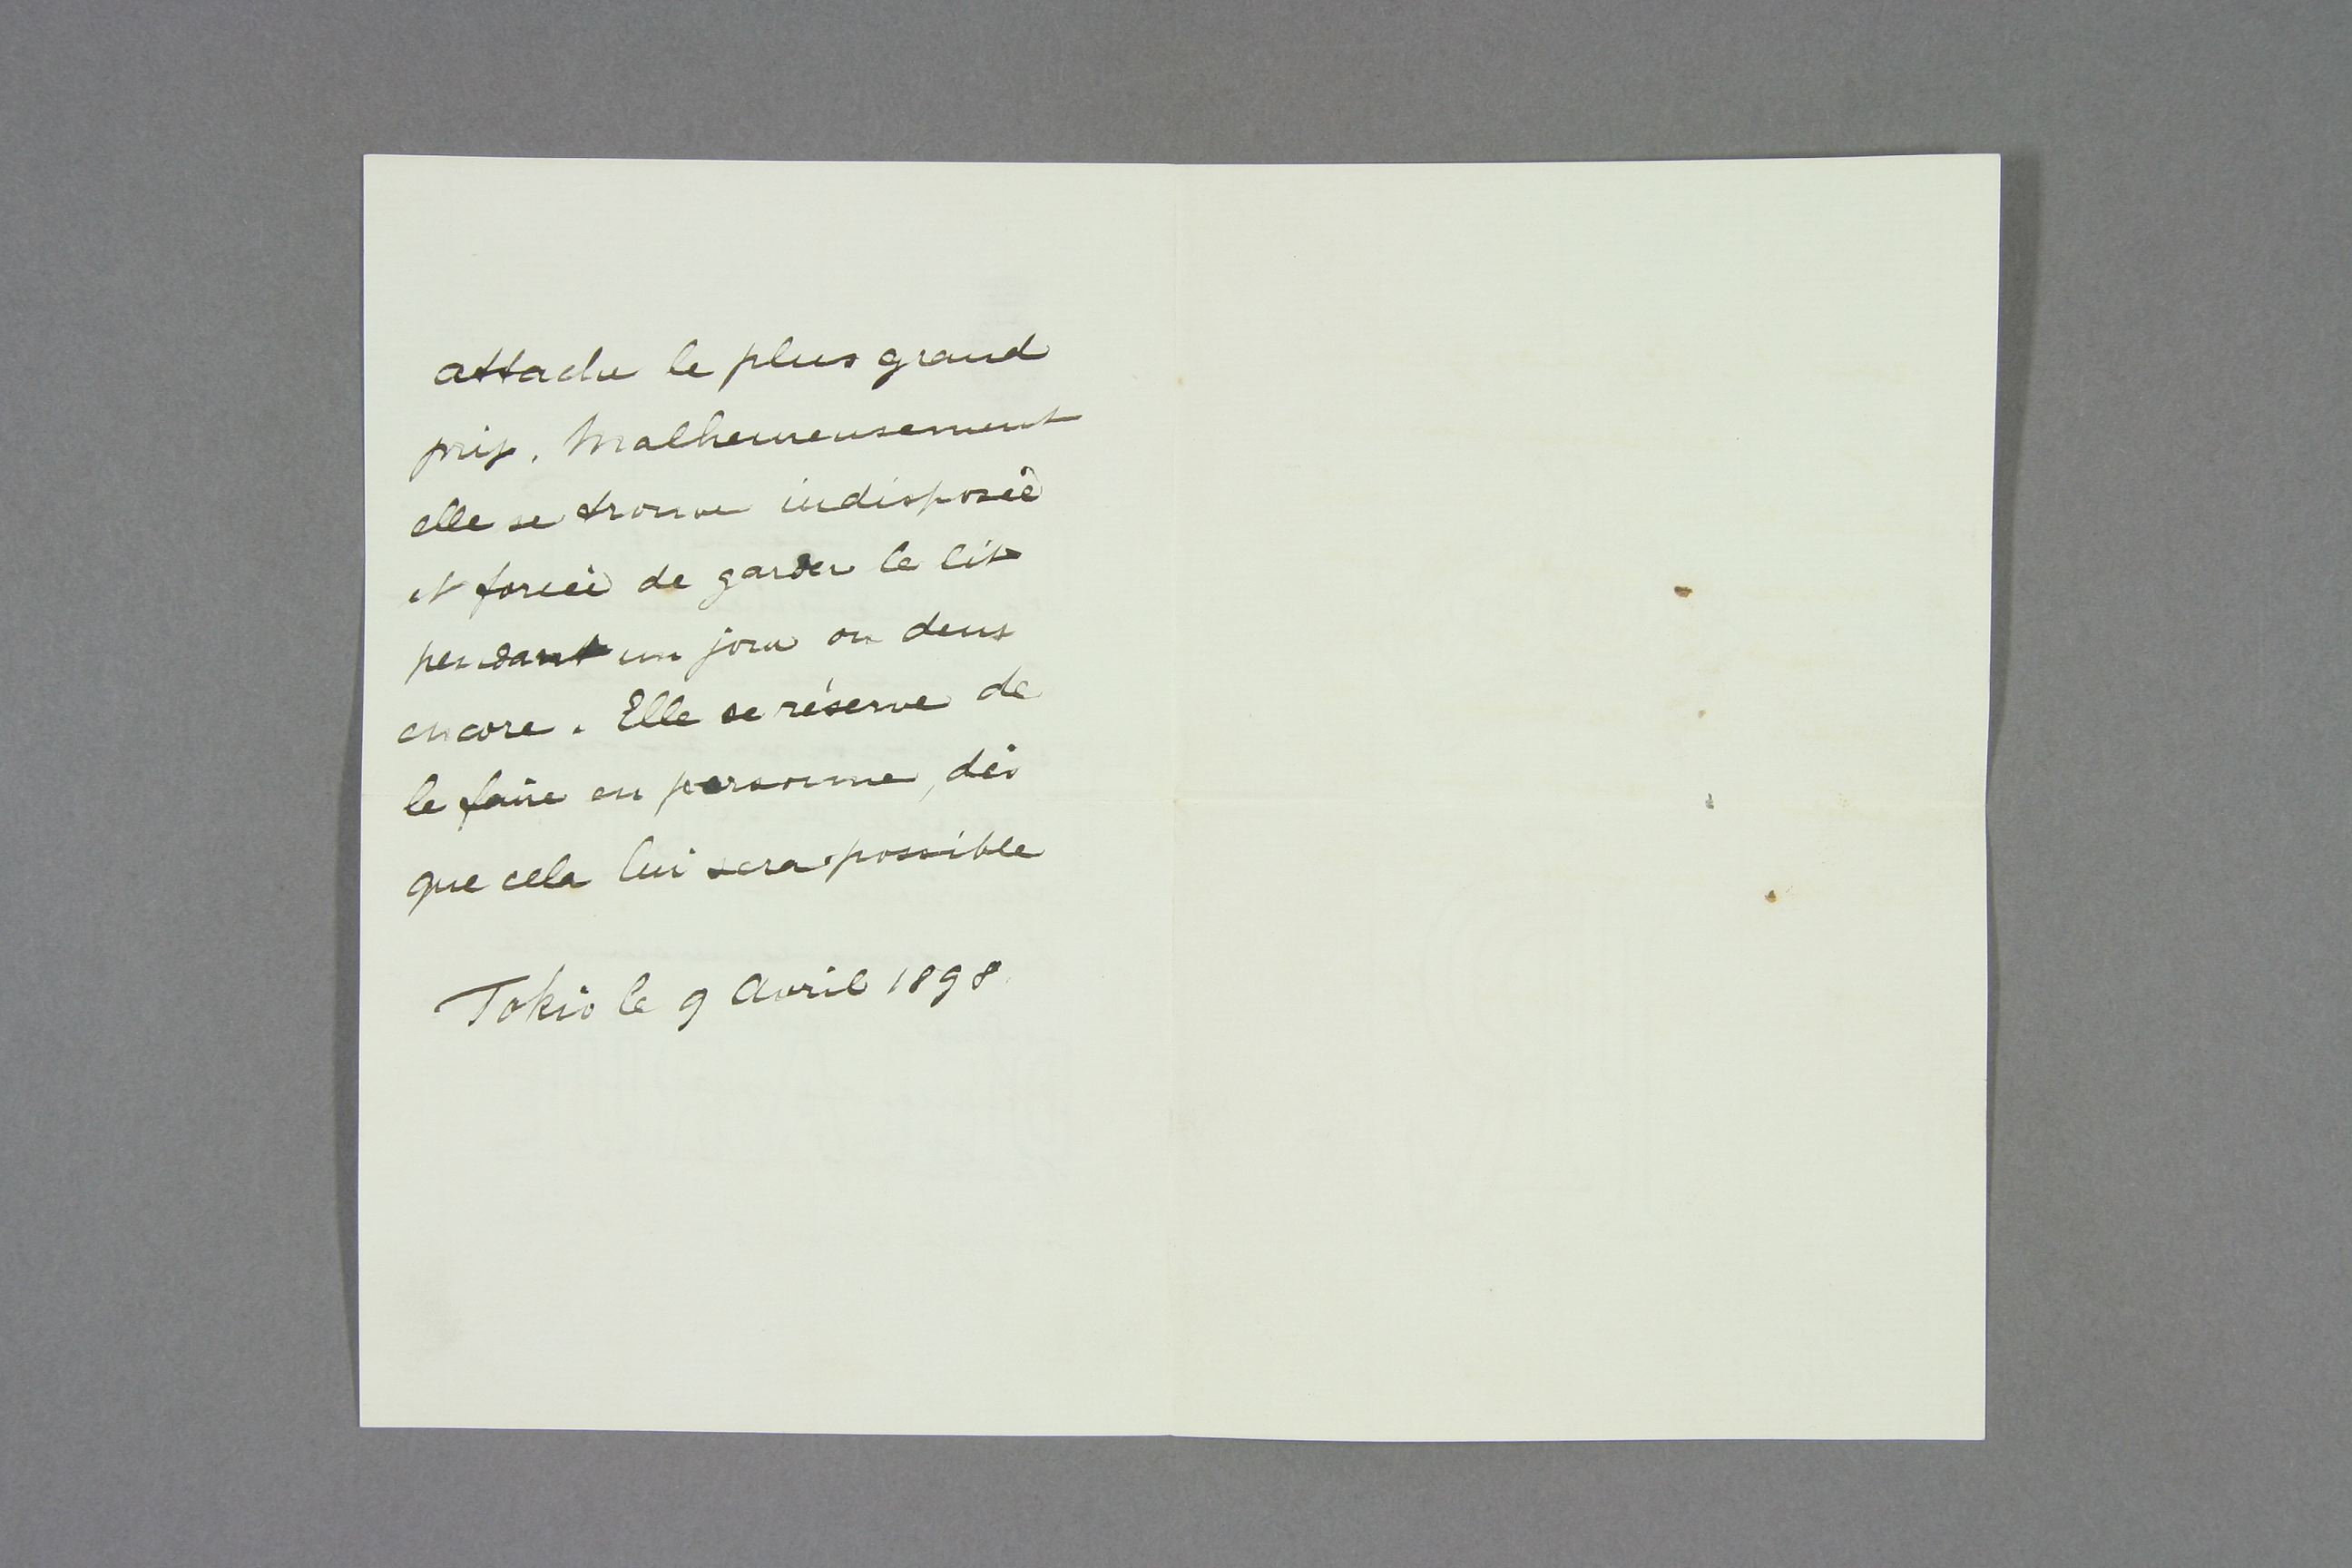 attache le plus grand
prix. Malheureusement
elle se trouve indisposée
et forcée de garder le lit
pendant un jour ou deux
encore. Elle se réserve de
le faire en personne, dès
que cela lui sera possible
Tokio le 9 Avril 1898.